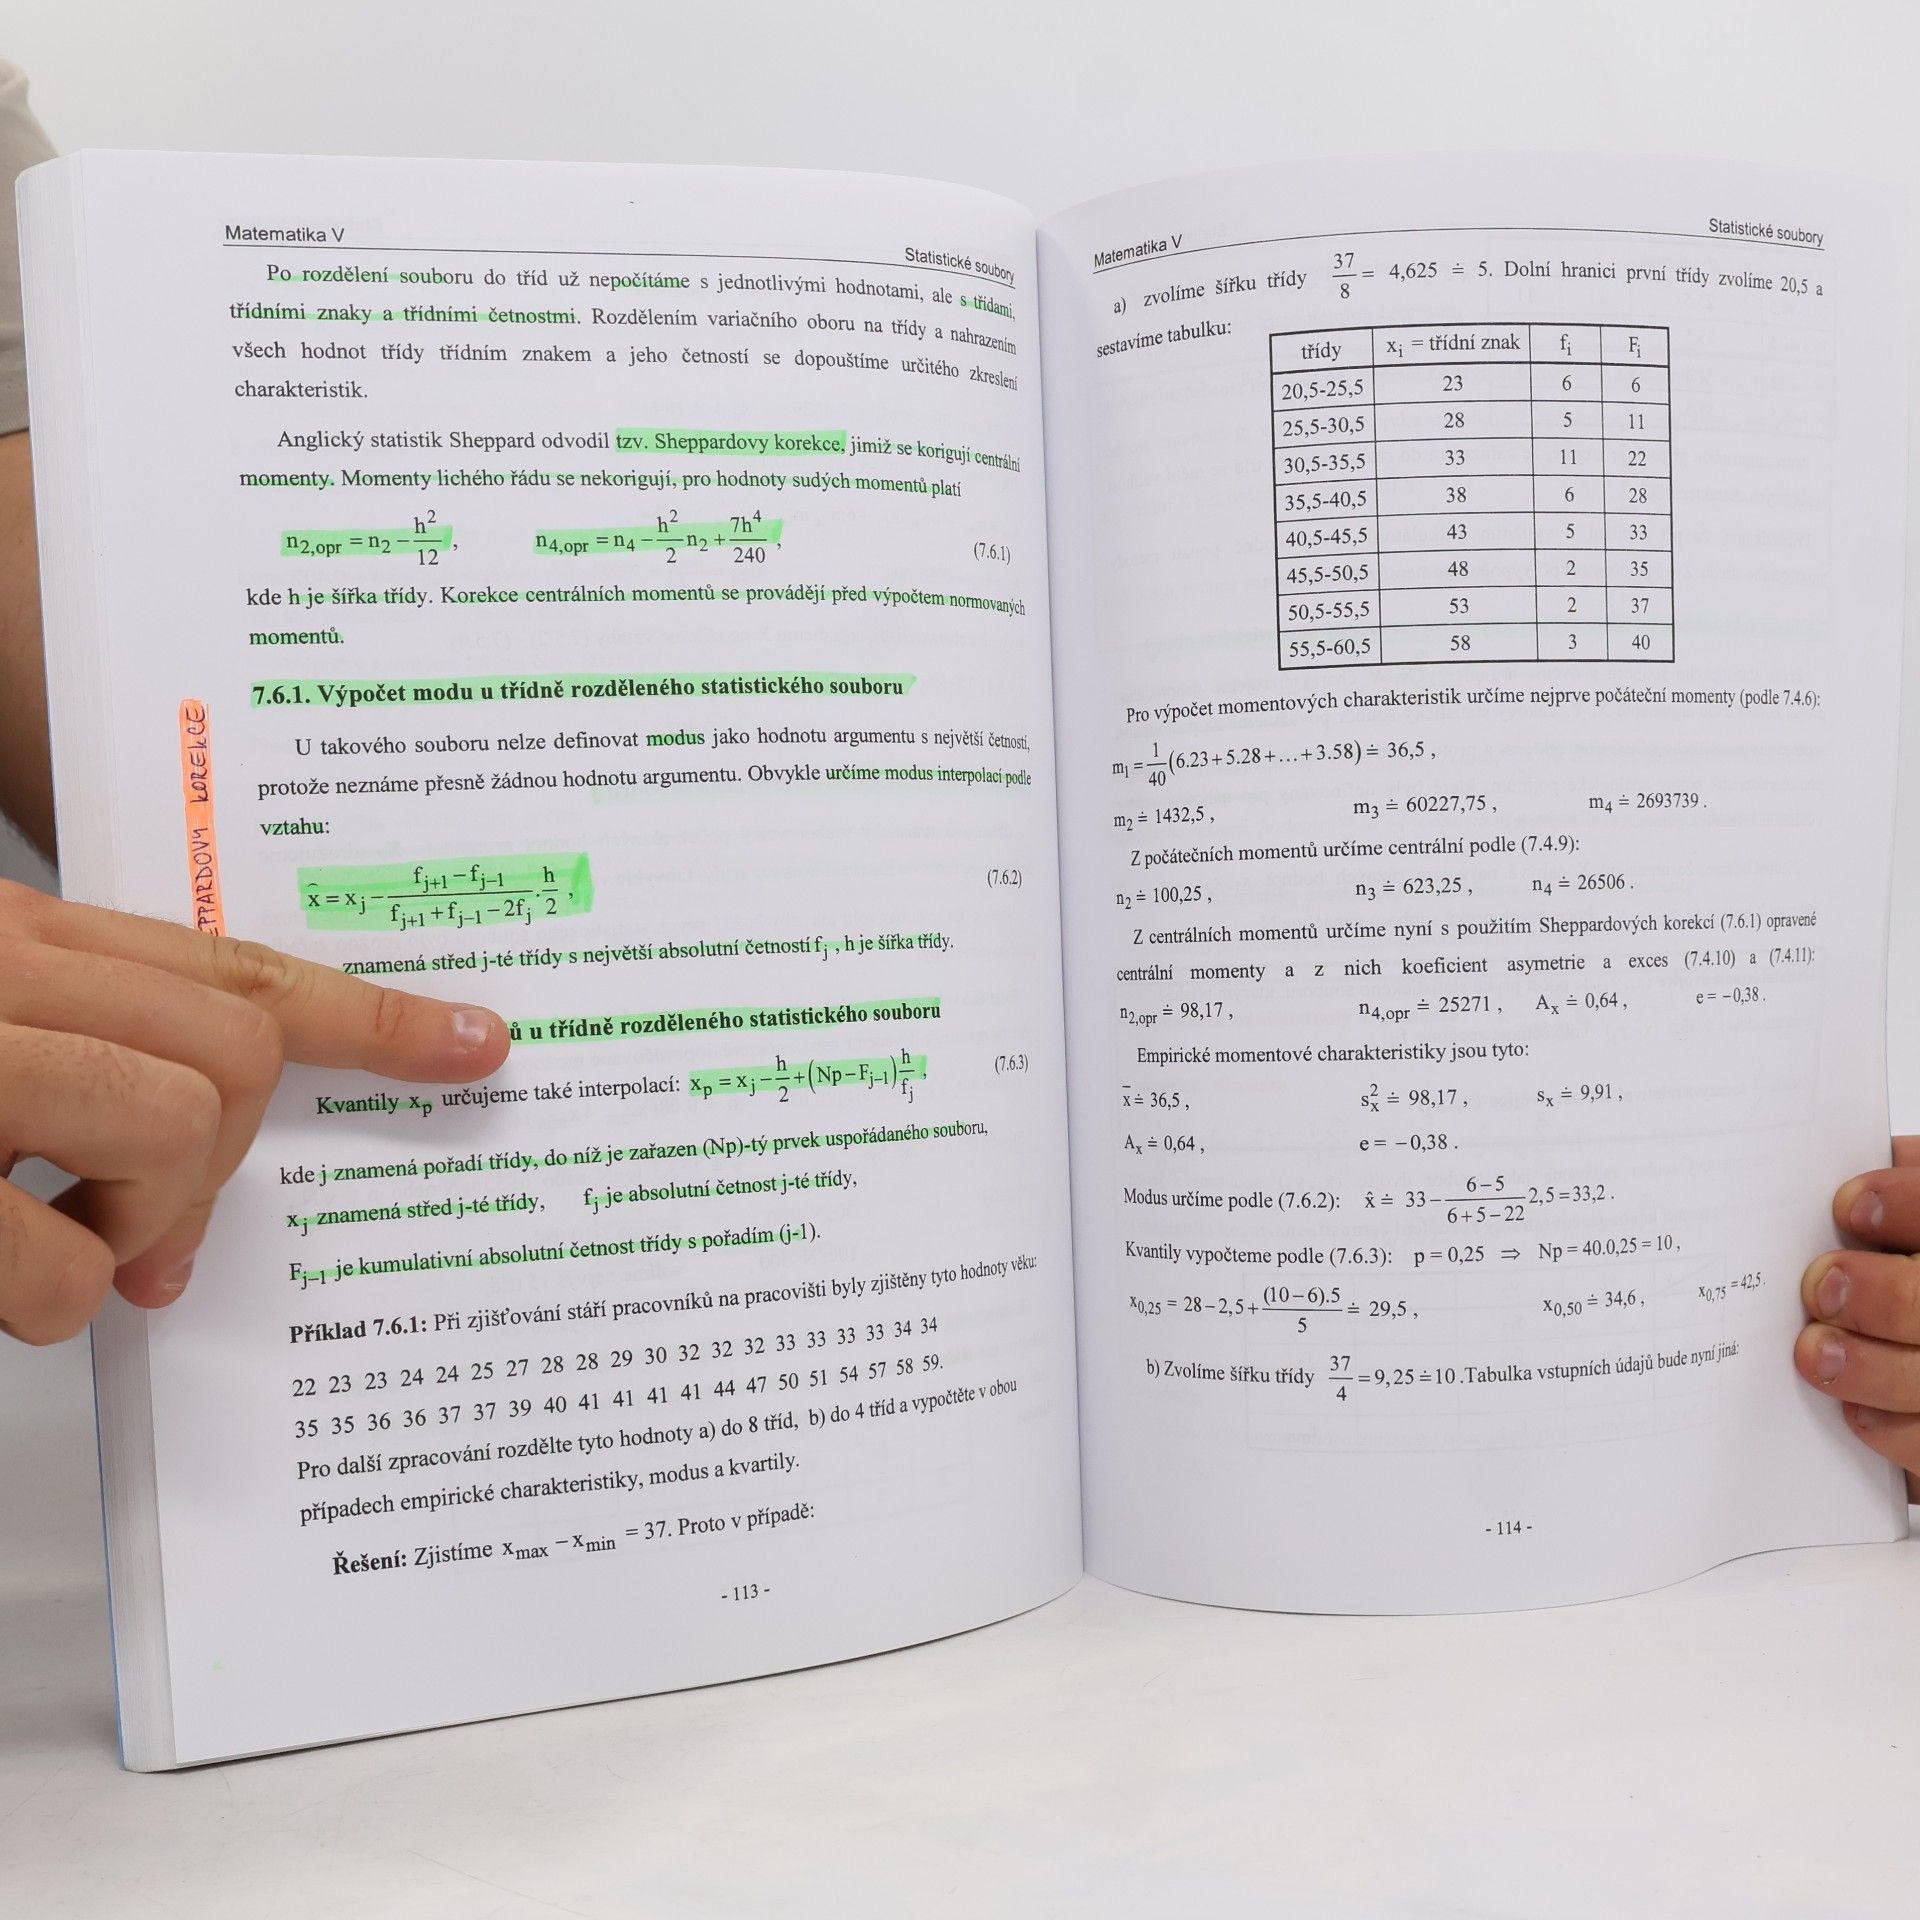 Matematika V
Statistické soubory
Po rozdělení souboru do tříd už nepočítáme s jednotlivými hodnotami, ale s třídami,
třídními znaky a třídními četnostmi. Rozdělením variačního oboru na třídy a nahrazením
všech hodnot třídy třídním znakem a jeho četností se dopouštíme určitého zkreslení
charakteristik.
Anglický statistik Sheppard odvodil tzv. Sheppardovy korekce, jimiž se korigují centrální
momenty. Momenty lichého řádu se nekorigují, pro hodnoty sudých momentů platí
n2,opr = n2 − h²/12 , n4,opr = n4 − h²/2 n2 + 7h⁴/240 , (7.6.1)
kde h je šířka třídy. Korekce centrálních momentů se provádějí před výpočtem normovaných
momentů.
7.6.1. Výpočet modu u třídně rozděleného statistického souboru
U takového souboru nelze definovat modus jako hodnotu argumentu s největší četností,
protože neznáme přesně žádnou hodnotu argumentu. Obvykle určíme modus interpolací podle
vztahu:
x̂ = xj − (fj+1 − fj−1)/(fj+1 + fj−1 − 2fj) · h/2 , (7.6.2)
znamená střed j-té třídy s největší absolutní četností fj , h je šířka třídy.
ů u třídně rozděleného statistického souboru
Kvantily xp určujeme také interpolací: xp = xj − h/2 + (Np − Fj−1) h/fj , (7.6.3)
kde j znamená pořadí třídy, do níž je zařazen (Np)-tý prvek uspořádaného souboru,
xj znamená střed j-té třídy, fj je absolutní četnost j-té třídy,
Fj−1 je kumulativní absolutní četnost třídy s pořadím (j-1).
Příklad 7.6.1: Při zjišťování stáří pracovníků na pracovišti byly zjištěny tyto hodnoty věku:
22 23 23 24 24 25 27 28 28 29 30 32 32 32 33 33 33 33 34 34
35 35 36 36 37 37 39 40 41 41 41 41 44 47 50 51 54 57 58 59.
Pro další zpracování rozdělte tyto hodnoty a) do 8 tříd, b) do 4 tříd a vypočtěte v obou
případech empirické charakteristiky, modus a kvartily.
Řešení: Zjistíme xmax − xmin = 37. Proto v případě:
- 113 -
EPPARDOVY KOREKCE
Matematika V
Statistické soubory
a) zvolíme šířku třídy 37/8 = 4,625 ≐ 5. Dolní hranici první třídy zvolíme 20,5 a
sestavíme tabulku:
třídy xi = třídní znak fi Fi
20,5-25,5 23 6 6
25,5-30,5 28 5 11
30,5-35,5 33 11 22
35,5-40,5 38 6 28
40,5-45,5 43 5 33
45,5-50,5 48 2 35
50,5-55,5 53 2 37
55,5-60,5 58 3 40
Pro výpočet momentových charakteristik určíme nejprve počáteční momenty (podle 7.4.6):
m1 = 1/40 (6.23 + 5.28 + … + 3.58) ≐ 36,5 ,
m2 ≐ 1432,5 , m3 ≐ 60227,75 , m4 ≐ 2693739 .
Z počátečních momentů určíme centrální podle (7.4.9):
n2 ≐ 100,25 , n3 ≐ 623,25 , n4 ≐ 26506 .
Z centrálních momentů určíme nyní s použitím Sheppardových korekcí (7.6.1) opravené
centrální momenty a z nich koeficient asymetrie a exces (7.4.10) a (7.4.11):
n2,opr ≐ 98,17 , n4,opr ≐ 25271 , Ax ≐ 0,64 , e = −0,38 .
Empirické momentové charakteristiky jsou tyto:
x̄ ≐ 36,5 , s²x ≐ 98,17 , sx ≐ 9,91 ,
Ax ≐ 0,64 , e = −0,38 .
Modus určíme podle (7.6.2): x̂ ≐ 33 − (6 − 5)/(6 + 5 − 22) 2,5 = 33,2 .
Kvantily vypočteme podle (7.6.3): p = 0,25 ⇒ Np = 40.0,25 = 10 ,
x0,25 = 28 − 2,5 + (10 − 6).5/5 ≐ 29,5 , x0,50 ≐ 34,6 , x0,75 = 42,5 .
b) Zvolíme šířku třídy 37/4 = 9,25 ≐ 10 .Tabulka vstupních údajů bude nyní jiná:
- 114 -